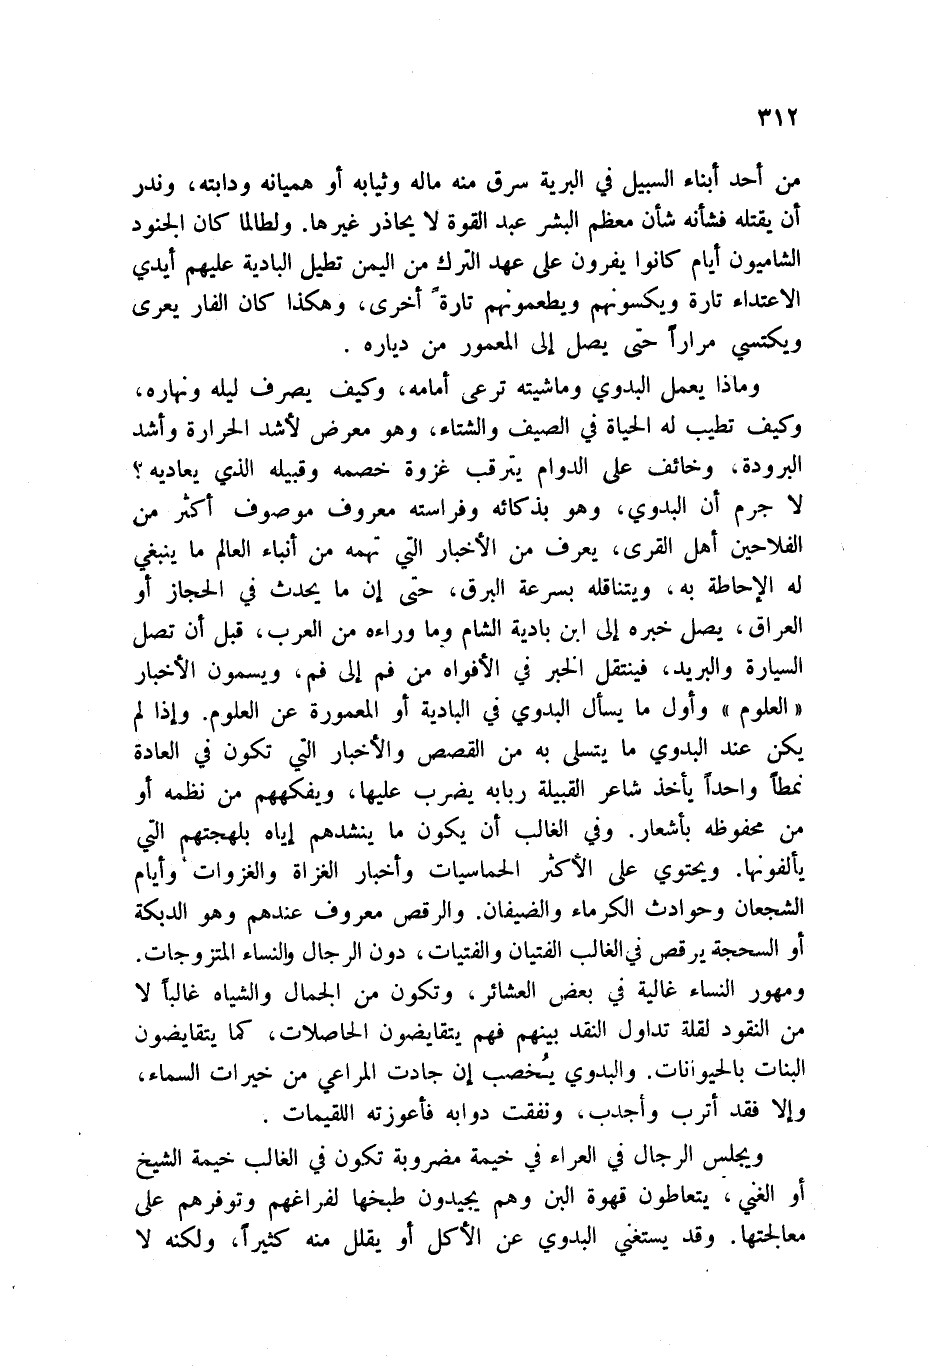 ٣١٢
من أحد أبناء السبيل في البرية سرق منه ماله وثيابه أو هميانه ودابته، وندر
أن يقتله فشأنه شأن معظم البشر عبد القوة لا يحاذر غيرها. ولطالما كان الجنود
الشاميون أيام كانوا يفرون على عهد الترك من اليمن تطيل البادية عليهم أيدي
الاعتداء تارة ويكسونهم ويطعمونهم تارةً أخرى، وهكذا كان الفار يعرى
ويكتسي مراراً حتى يصل إلى المعمور من دياره .
وماذا يعمل البدوي وماشيته ترعى أمامه، وكيف يصرف ليله ونهاره،
وكيف تطيب له الحياة في الصيف والشتاء، وهو معرض لأشد الحرارة وأشد
البرودة، وخائف على الدوام يترقب غزوة خصمه وقبيله الذي يعاديه ؟
لا جرم أن البدوي، وهو بذكائه وفراسته معروف موصوف أكثر من
الفلاحين أهل القرى، يعرف من الأخبار التي تهمه من أنباء العالم ما ينبغي
له الإحاطة به، ويتناقله بسرعة البرق، حتى إن ما يحدث في الحجاز أو
العراق، يصل خبره إلى ابن بادية الشام وما وراءه من العرب، قبل أن تصل
السيارة والبريد، فينتقل الخبر في الأفواه من فم إلى فم، ويسمون الأخبار
« العلوم » وأول ما يسأل البدوي في البادية أو المعمورة عن العلوم. وإذا لم
يكن عند البدوي ما يتسلى به من القصص والأخبار التي تكون في العادة
نمطاً واحداً يأخذ شاعر القبيلة ربابه يضرب عليها، ويفكههم من نظمه أو
من محفوظه بأشعار. وفي الغالب أن يكون ما ينشدهم إياه بلهجتهم التي
يألفونها. ويحتوي على الأكثر الحماسيات وأخبار الغزاة والغزوات وأيام
الشجعان وحوادث الكرماء والضيفان. والرقص معروف عندهم وهو الدبكة
أو السحجة يرقص في الغالب الفتيان والفتيات، دون الرجال والنساء المتزوجات.
ومهور النساء غالية في بعض العشائر، وتكون من الجمال والشياه غالباً لا
من النقود لقلة تداول النقد بينهم فهم يتقايضون الحاصلات، كما يتقايضون
البنات بالحيوانات. والبدوي يُخصب إن جادت المراعي من خيرات السماء،
وإلا فقد أترب وأجدب، ونفقت دوابه فأعوزته اللقيمات .
ويجلس الرجال في العراء في خيمة مضروبة تكون في الغالب خيمة الشيخ
أو الغني، يتعاطون قهوة البن وهم يجيدون طبخها لفراغهم وتوفرهم على
معالجتها. وقد يستغني البدوي عن الأكل أو يقلل منه كثيراً، ولكنه لا